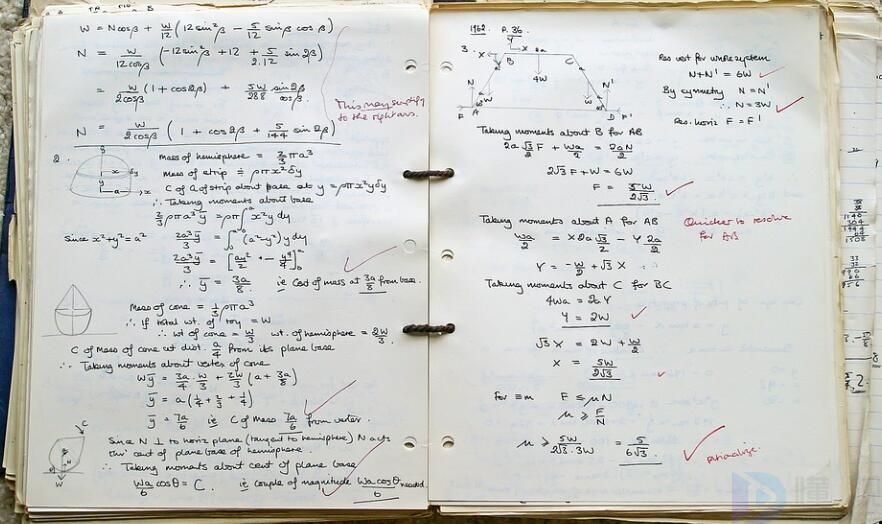 W = Ncosβ + W/12 (12sin²β - 5/12 sinβ cosβ)
N = W/12cosβ (-12sin²β + 12 + 5/2.12 sin2β)
= W/2cosβ (1 + cos2β) + 5W/288 sin2β/cosβ
This may simplify
to the right ans.
N = W/2cosβ (1 + cos2β + 5/144 sin2β)
2.
Mass of hemisphere = 2/3 πa³
Mass of strip ≑ ρπx²δy
C of G of strip about base at y = ρπx²yδy
∴ Taking moments about base
2/3 ρπa³ȳ = ρπ∫x²y dy
Since x²+y²=a²
2a³ȳ/3 = ∫(a²-y²)y dy
2a³ȳ/3 = [ay²/2 - y⁴/4]
∴ ȳ = 3a/8 ie Cent of mass at 3a/8 from base.
Mass of cone = 1/3 ρπa³
∴ If total wt. of toy = W
∴ wt of cone = W/3 wt. of hemisphere = 2W/3
C of Mass of cone at dist. a/4 from its plane base
∴ Taking moments about vertex of cone
Wȳ = 3a/4 . W/3 + 2W/3 (a + 3a/8)
ȳ = a(1/4 + 2/3 + 1/4)
ȳ = 7a/6 ie C of Mass 7a/6 from vertex.
Since N ⊥ to horiz plane (tangent to hemisphere) N acts
thr' cent of plane base of hemisphere.
∴ Taking moments about cent of plane base
Wa/6 cosθ = C. ie couple of magnitude Wa cosθ/6 needed.
1962. P. 36.
3.
Y
X
2a
X
B
C
4W
N
N'
W
W
F
A
D
F'
Res vert for whole system
N+N' = 6W
By symmetry N = N'
∴ N = 3W
Res. horiz F = F'
Taking moments about B for AB
2a√3/2 F + Wa/2 = 2aN/2
2√3 F + W = 6W
F = 5W/2√3
Taking moments about A for AB
Quicker to resolve
for AB
Wa/2 = X2a√3/2 - Y 2a/2
Y = -W/2 + √3 X
Taking moments about C for BC
4Wa = 2aY
Y = 2W
√3 X = 2W + W/2
X = 5W/2√3
for ≡m F ≤ μN
μ ≥ F/N
μ ≥ 5W/2√3.3W = 5/6√3
rationalize.